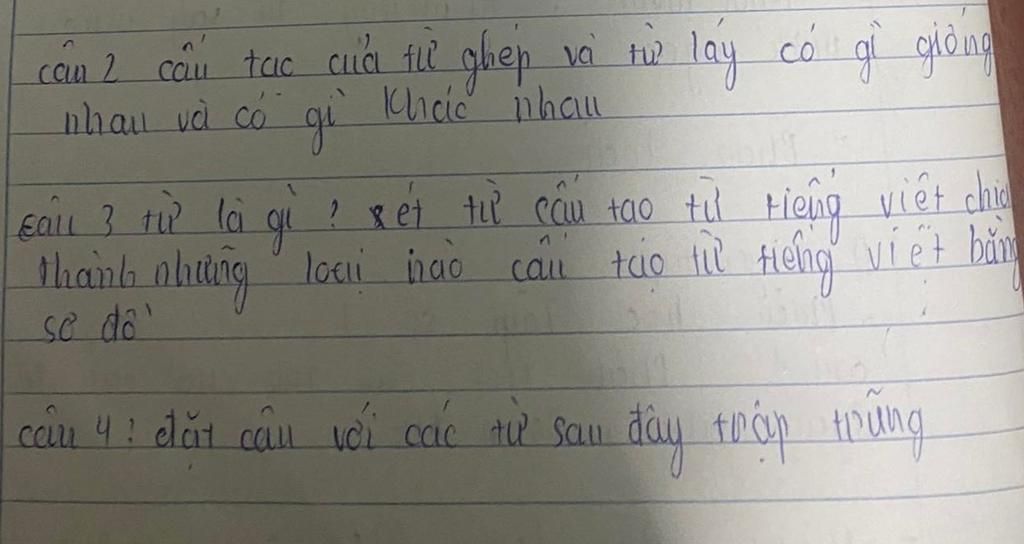 câu 2 cấu tạc của từ ghép và từ láy có gì giống
nhau và có gì khác nhau
câu 3 từ là gì ? xét từ cấu tạo từ tiếng việt chia
thành những loại nào cấu tạo từ tiếng việt bằng
sơ đồ
câu 4 : đặt câu với các từ sau đây trập trững